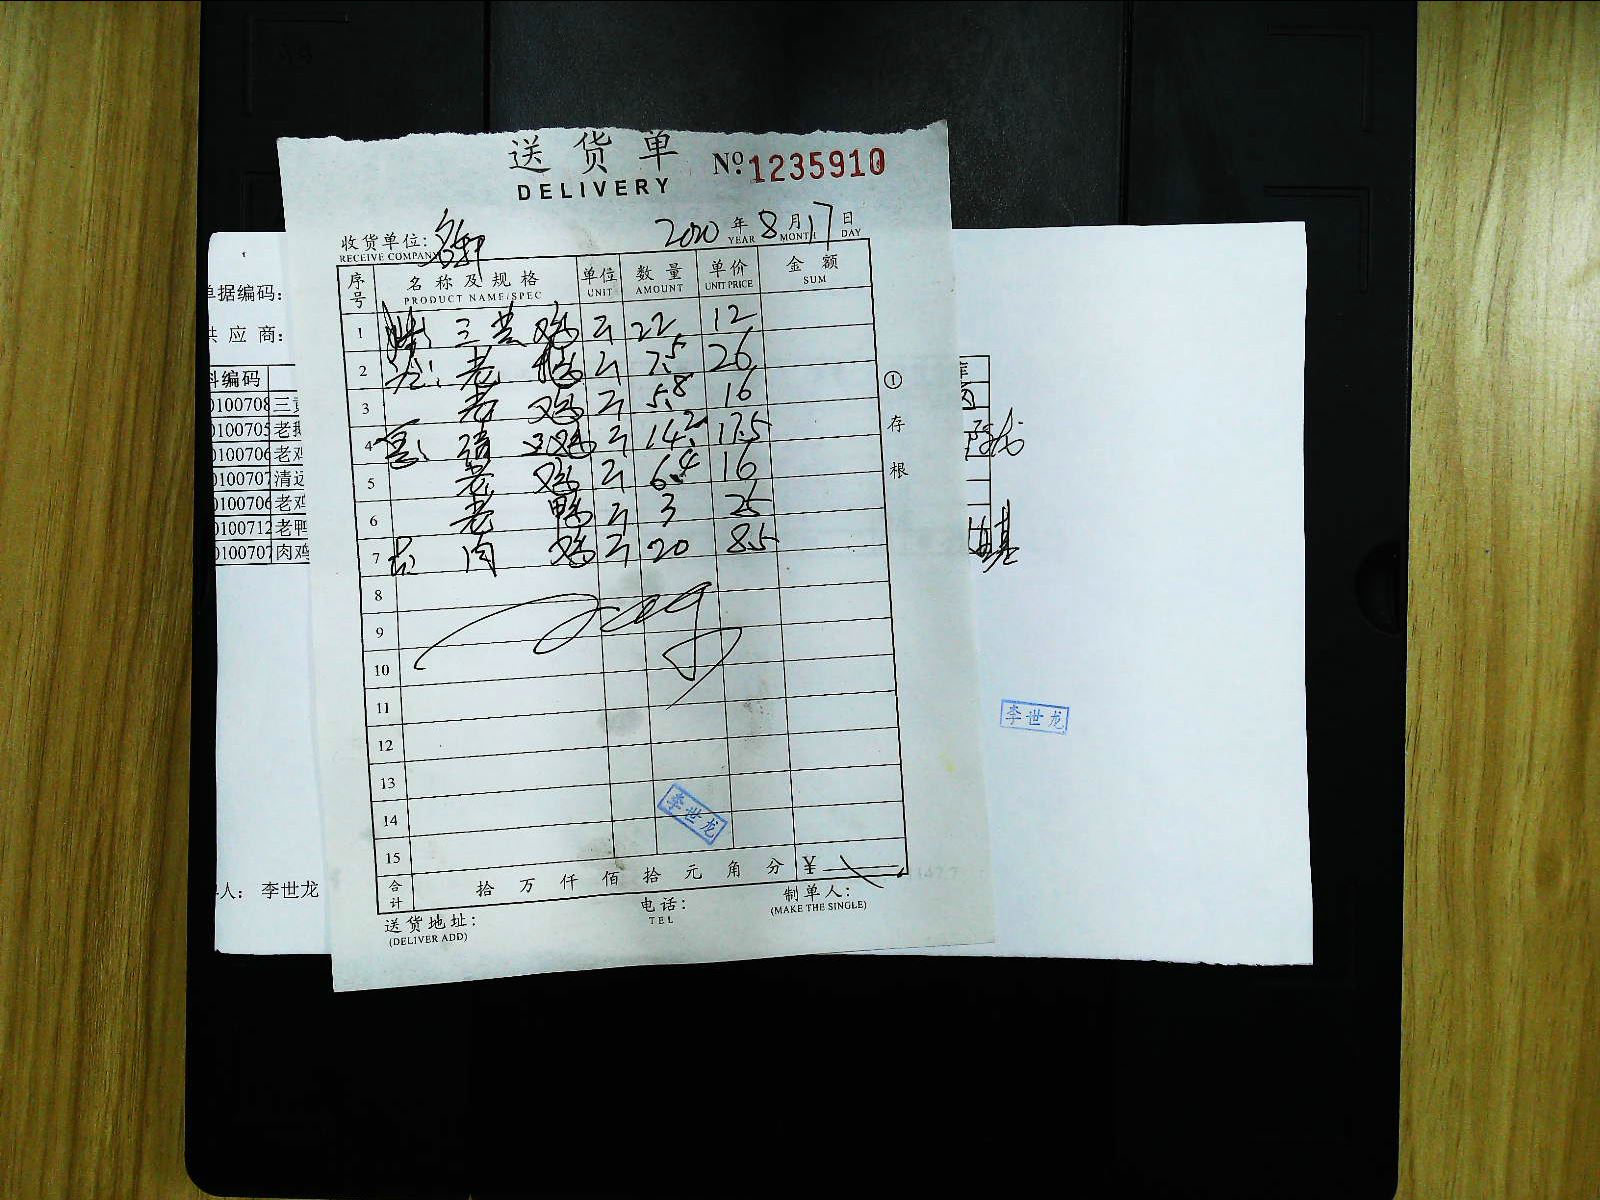 送货单
DELIVERY
№ 1235910
收货单位:
RECEIVE COMPANY
2020 年 8 月 17 日
YEAR MONTH DAY
序号 名称及规格 单位 数量 单价 金额
PRODUCT NAME/SPEC UNIT AMOUNT UNIT PRICE SUM
1 三黄鸡 斤 22 12
2 老鹅 斤 7.5 26
3 老鸡 斤 5.8 16
4 清远鸡 斤 14.2 17.5
5 老鸡 斤 6.4 16
6 老鸭 斤 3 25
7 肉鸡 斤 20 8.5
8
9
10
11
12
13
14
15
合计 拾 万 仟 佰 拾 元 角 分 ¥
送货地址:
(DELIVER ADD)
电话:
TEL
制单人:
(MAKE THE SINGLE)
① 存根
李世龙
单据编码:
供应商:
料编码
0100708 三黄
0100705 老鹅
0100706 老鸡
0100707 清远
0100706 老鸡
0100712 老鸭
0100707 肉鸡
人: 李世龙
李世龙